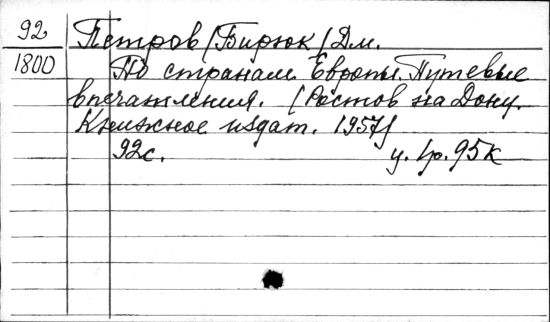 92 Петров /Бирюк/ Дм.
1800 По странам Европы. Путевые
впечатления. [Ростов на Дону.
Книжное издат. 1957]
92 с. ц. 1р. 95к